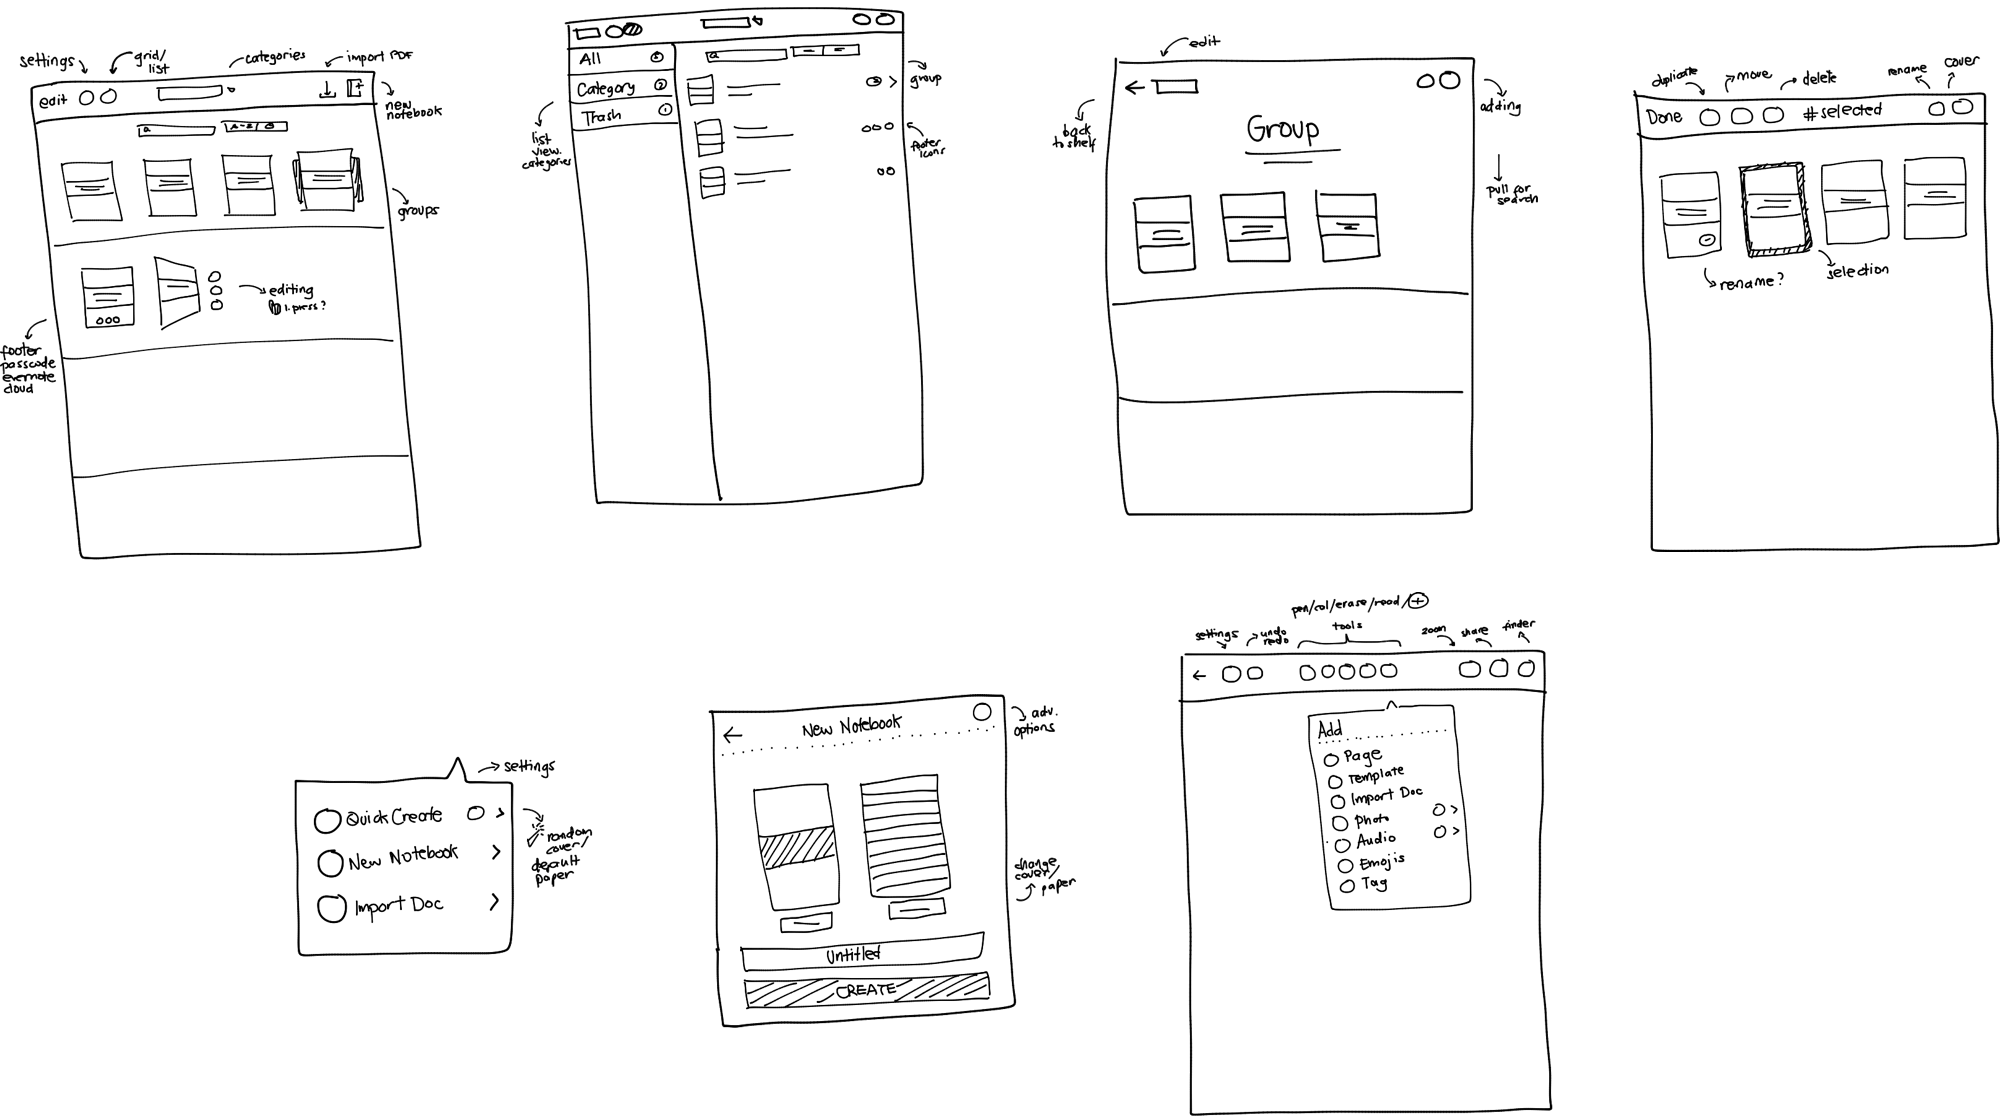 settings
grid/
list
categories
import PDF
edit
a
A-Z
new
notebook
groups
editing
l. press?
footer
passcode
evernote
cloud
a
All
3
Category
2
Trash
1
3
group
list
view
categories
footer
icons
edit
back
to shelf
adding
Group
pull for
search
duplicate
move
delete
rename
cover
Done
#selected
rename?
selection
settings
Quick Create
New Notebook
Import Doc
random
cover/
default
paper
New Notebook
adv.
options
change
cover/
paper
Untitled
CREATE
pen/col/erase/read/+
settings
undo
redo
tools
zoom
share
finder
Add
Page
Template
Import Doc
Photo
Audio
Emojis
Tag